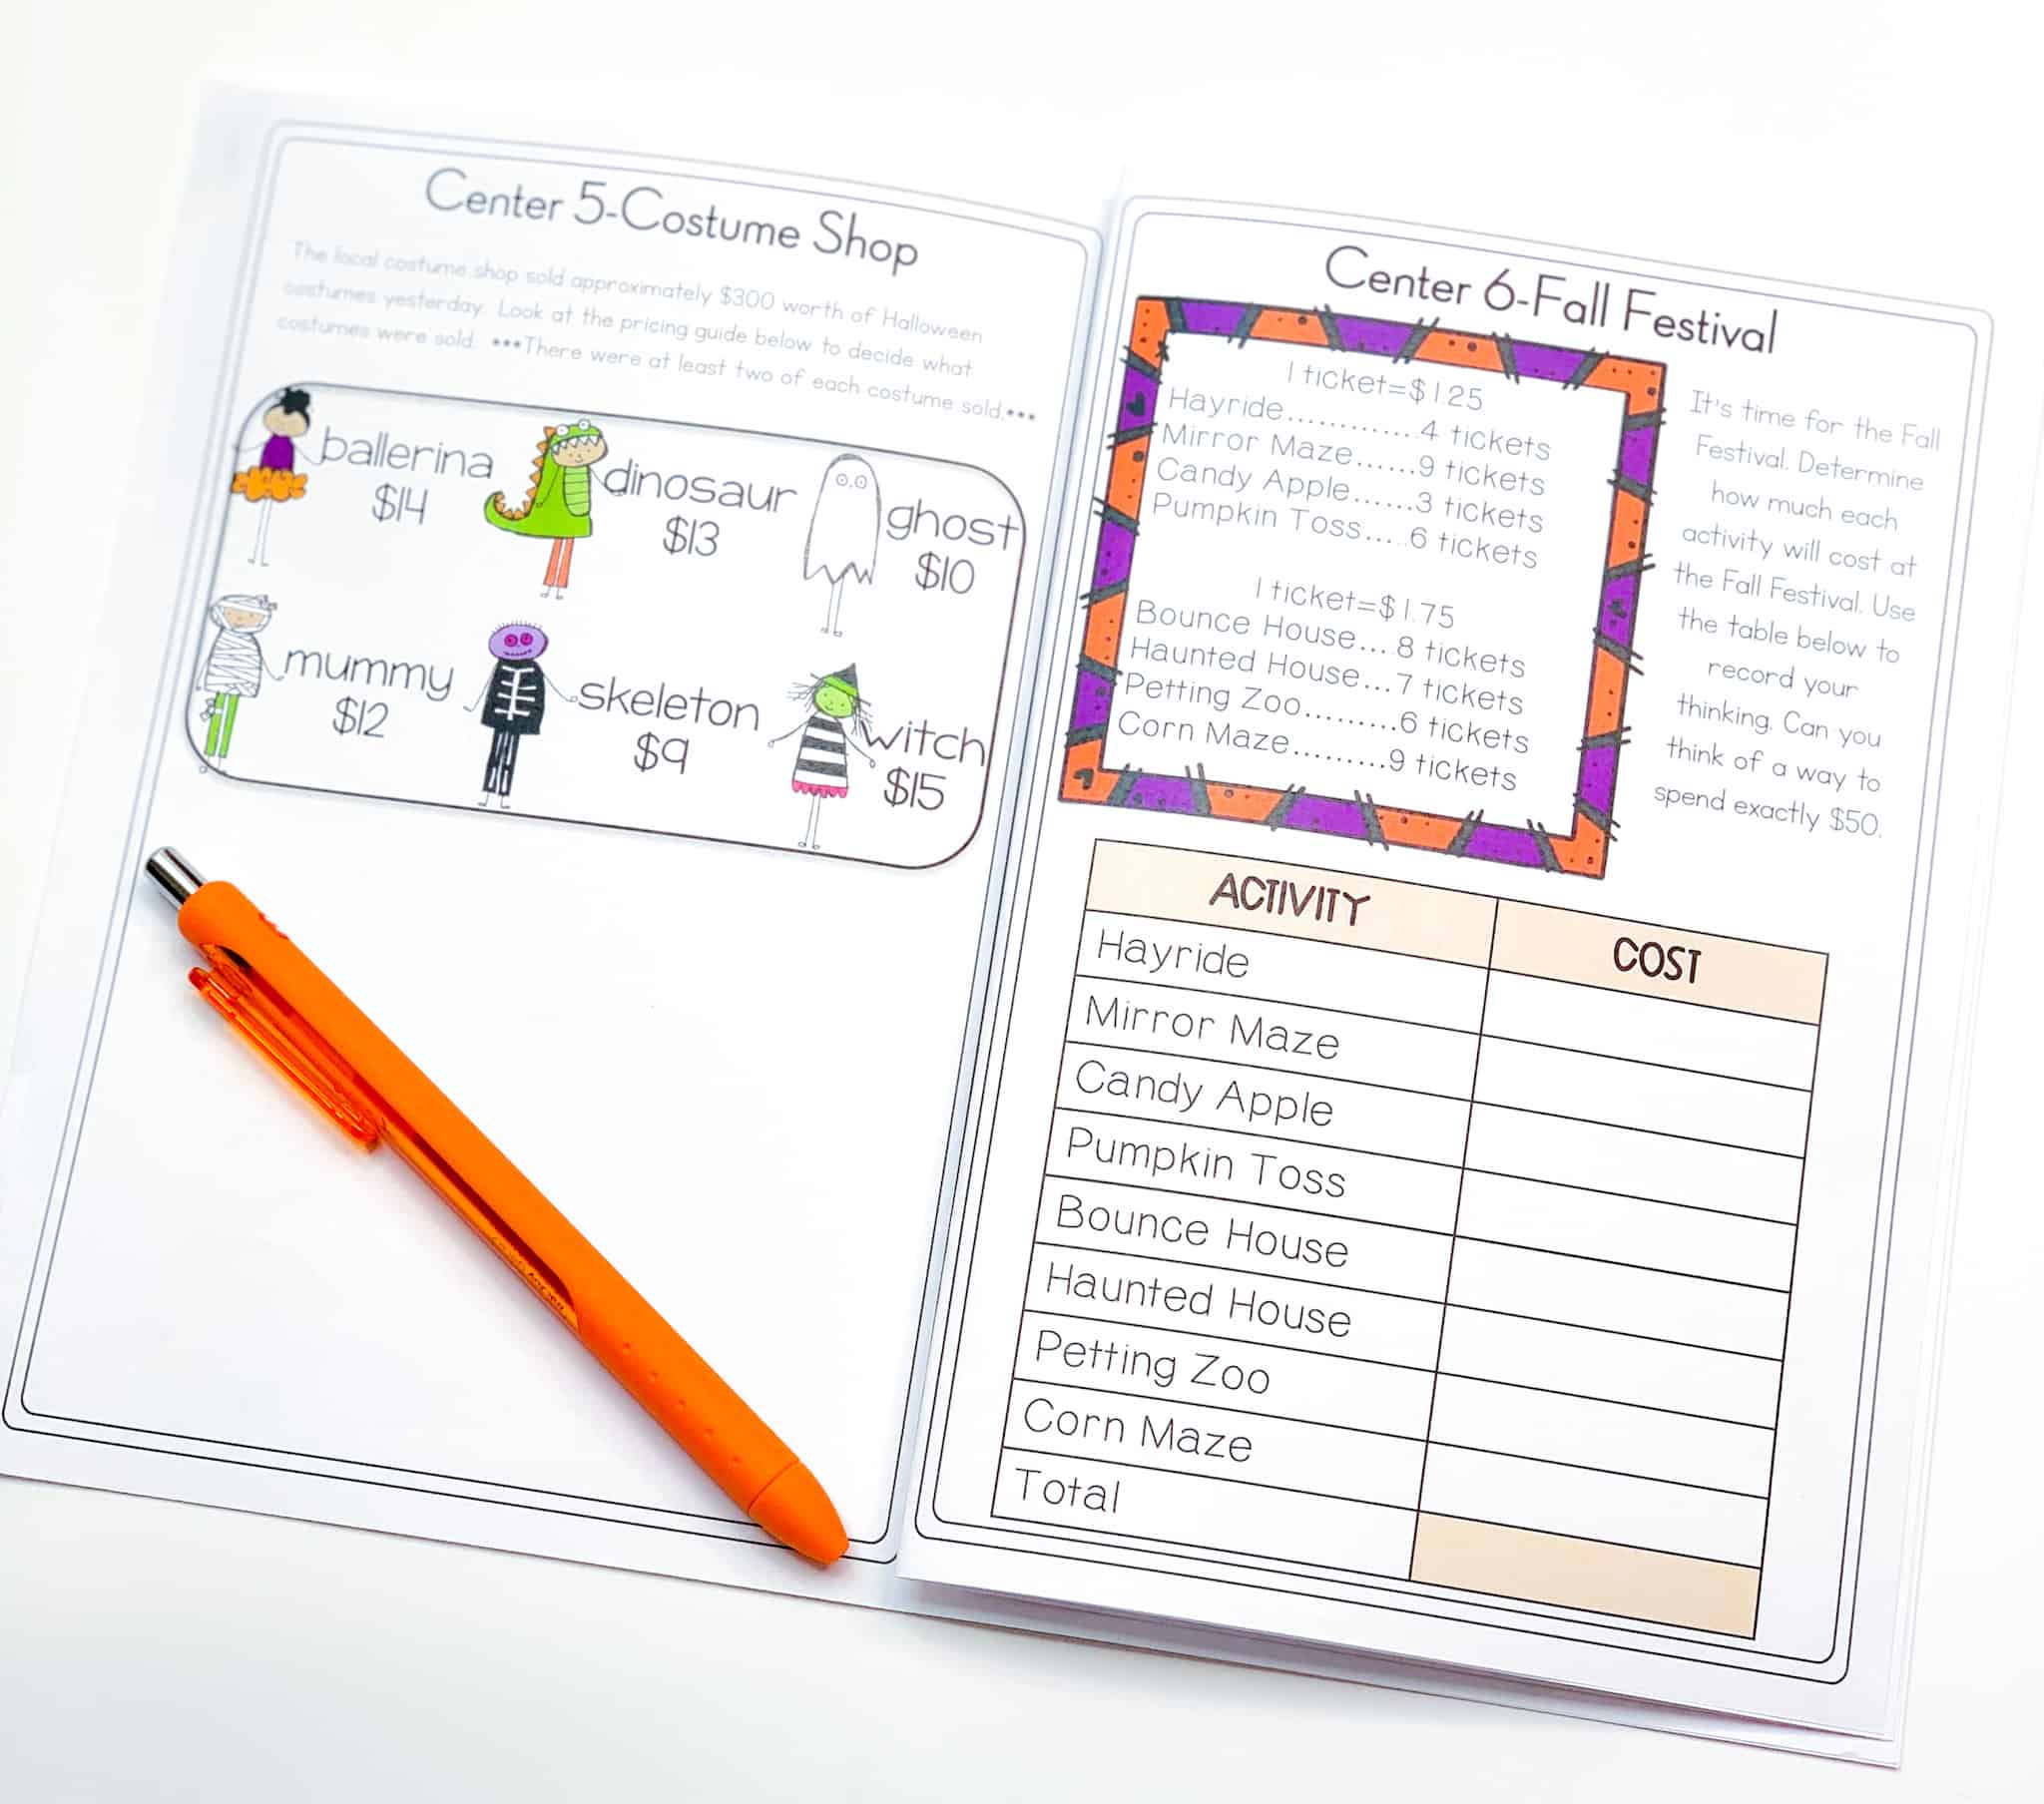 Center 5-Costume Shop
The local costume shop sold approximately $300 worth of Halloween
costumes yesterday. Look at the pricing guide below to decide what
costumes were sold. ***There were at least two of each costume sold.***
ballerina
$14
dinosaur
$13
ghost
$10
mummy
$12
skeleton
$9
witch
$15
Center 6-Fall Festival
1 ticket=$1.25
Hayride.............4 tickets
Mirror Maze......9 tickets
Candy Apple......3 tickets
Pumpkin Toss.....6 tickets
1 ticket=$1.75
Bounce House....8 tickets
Haunted House...7 tickets
Petting Zoo.........6 tickets
Corn Maze.........9 tickets
It's time for the Fall
Festival. Determine
how much each
activity will cost at
the Fall Festival. Use
the table below to
record your
thinking. Can you
think of a way to
spend exactly $50.
ACTIVITY COST
Hayride
Mirror Maze
Candy Apple
Pumpkin Toss
Bounce House
Haunted House
Petting Zoo
Corn Maze
Total